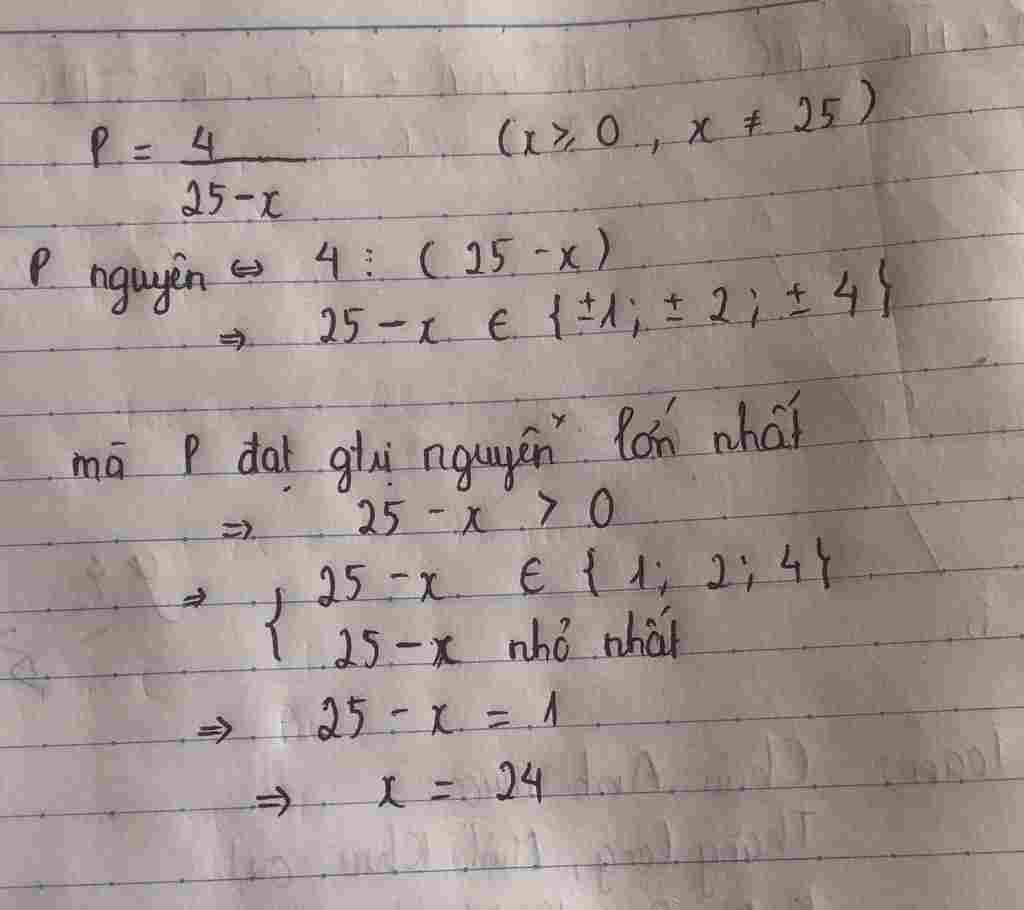 P = 4 / (25 - x) (x ⩾ 0, x ≠ 25)
P nguyên ⇔ 4 ⋮ (25 - x)
⇒ 25 - x ∈ {±1; ± 2; ± 4}
mà P đạt gtrị nguyên lớn nhất
⇒ 25 - x > 0
⇒ { 25 - x ∈ {1; 2; 4}
25 - x nhỏ nhất
⇒ 25 - x = 1
⇒ x = 24